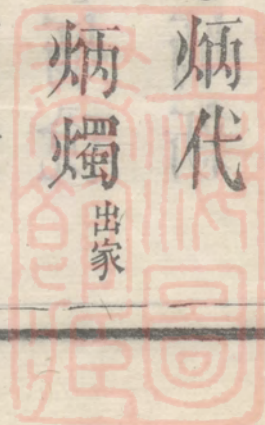 炳代
炳燭出家